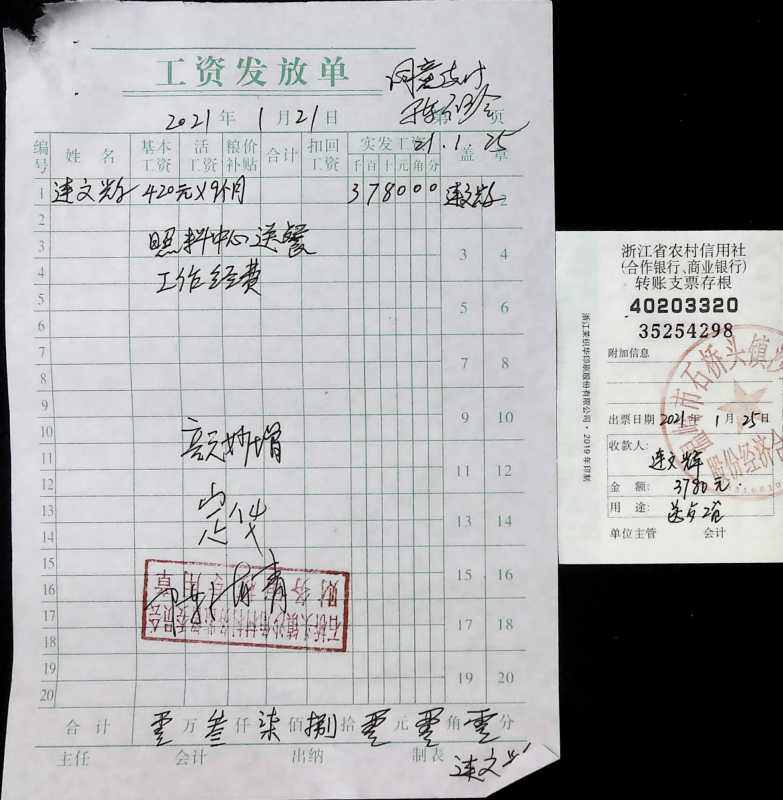 工资发放单
同意支付
2021年1月21日 第 页
21.1.25
编号 姓名 基本工资 活工资 粮价补贴 合计 扣回工资 实发工资 盖章
千百十元角分
1 连文辉 420元×9个月 378000 连文辉 2
2
3 照料中心送餐 3 4
4 工作经费
5 5 6
6
7 7 8
8
9 9 10
10
11 11 12
12
13 13 14
14
15 15 16
16
17 17 18
18
19 19 20
20
合计 零万叁仟柒佰捌拾零元零角零分
主任 会计 出纳 制表 连文辉
浙江省农村信用社
(合作银行、商业银行)
转账支票存根
40203320
35254298
附加信息
出票日期 2021年1月25日
收款人:
连文辉
金额: 3780元
用途:
单位主管 会计